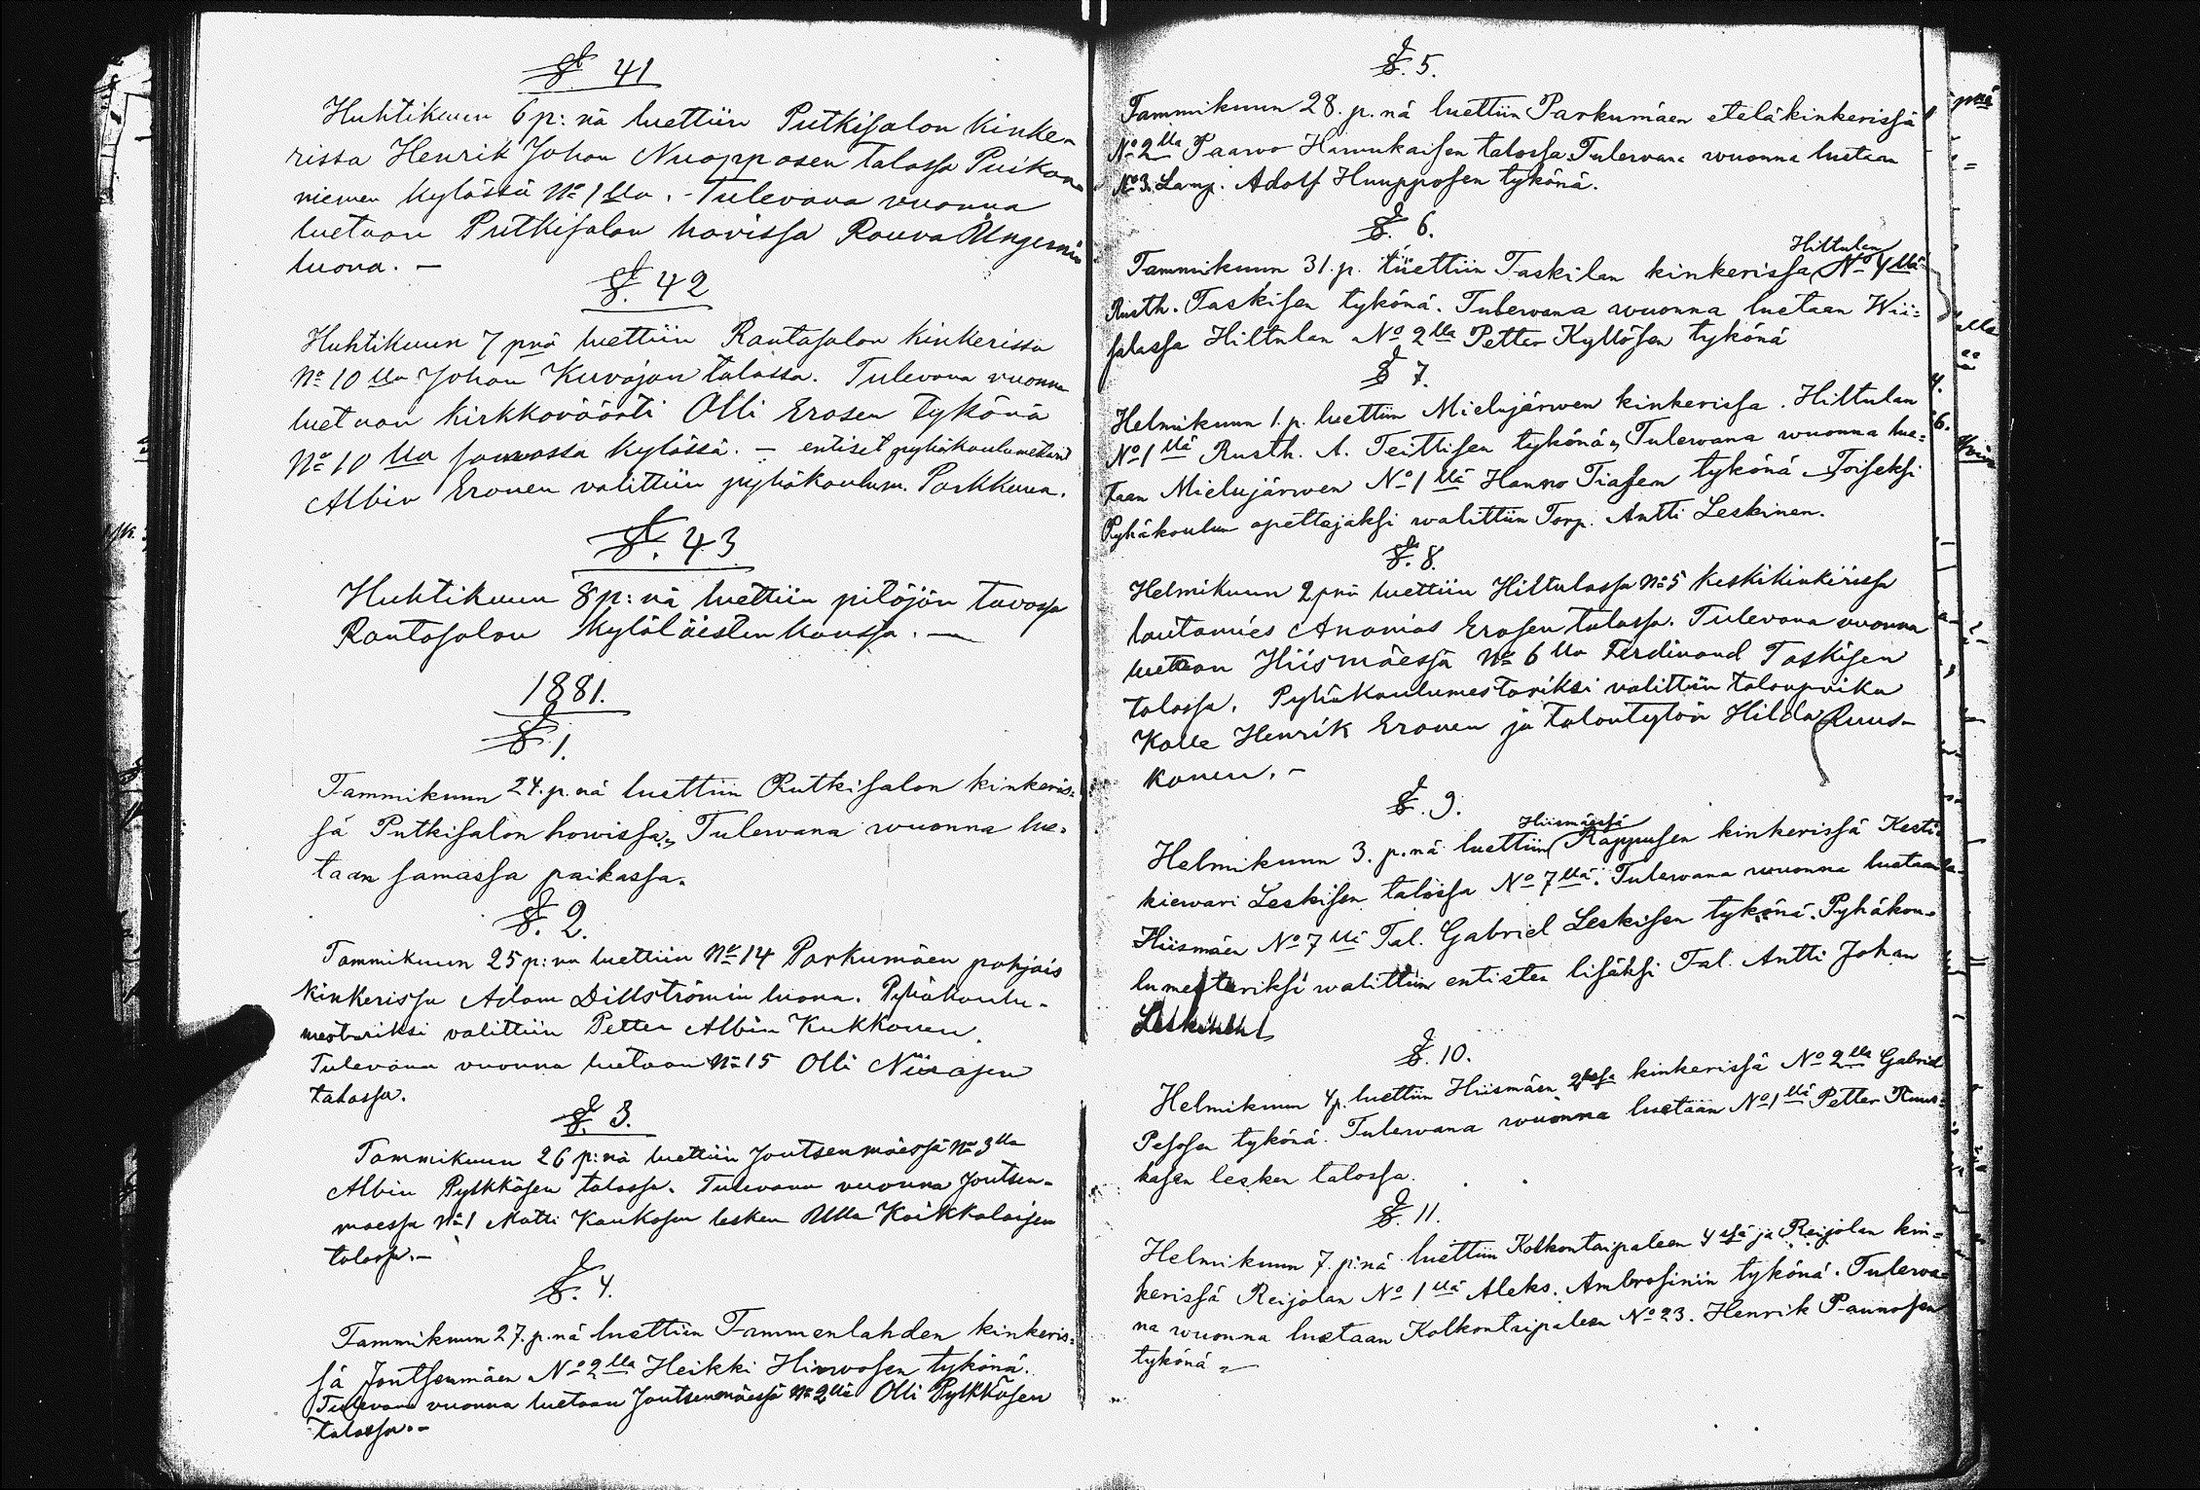 §. 41
Huhtikuun 6 p: nä luettiin Putkisalon kinke-
rissa Henrik Johan Nuopposen talossa Puikon
niemen kylässä No 1 lla. - Tulevana vuonna
luetaan Putkisalon hovissa Rouva Ungernin
luona. -
§. 42
Huhtikuun 7 pnä luettiin Rantasalon kinkerissa
No 10 lla Johan Kuvajan talossa. Tulevana vuonna
luetaan kirkkoväärti Olli Erosen tykönä
No 10 lla samassa kylässä. - entiset pyhäkoulumestarit
Albin Eronen valittiin pyhäkoulum. Parkkuun.
§. 43
Huhtikuun 8 p: nä luettiin pitäjän tuvassa
Rantasalon kyläläisten kanssa. -
1881.
§. 1.
Tammikuun 24. p. nä luettiin Putkisalon kinkeris-
sä Putkisalon howissa. Tulewana wuonna lue-
taan samassa paikassa.
§. 2.
Tammikuun 25 p: nä luettiin No 14 Parkumäen pohjois
kinkerissa Adam Dillströmin luona. Pyhäkoulu-
mestariksi valittiin Petter Albin Kukkonen.
Tulevana vuonna luetaan No 15 Olli Niirasen
talossa.
§. 3.
Tammikuun 26 p: nä luettiin Joutsenmäessä No 3 lla
Albin Pylkkösen talossa. Tulevana vuonna Joutsen-
maessa No 1 Matti Kaukosen lesken Ulla Koikkalaisen
talossa. -
§. 4.
Tammikuun 27. p. nä luettiin Tammenlahden kinkeris-
sä Joutsenmäen No 2 lla Heikki Hirwosen tykönä.
Tulevana vuonna luetaan Joutsenmäessä No 2 lla Olli Pylkkösen
talossa. -
§. 5.
Tammikuun 28. p. nä luettiin Parkumäen eteläkinkerissä
No 2 lla Paawo Hannukaisen talossa. Tulewana wuonna luetaan
No 3. Lamp. Adolf Huupposen tykönä.
§. 6.
Hiltulan
Tammikuun 31. p. luettiin Taskilan kinkerissa No 4 llä
Rusth. Taskisen tykönä. Tulewana wuonna luetaan Wii-
salassa Hiltulan No 2 lla Petter Kyllösen tykönä
§ 7.
Helmikuun 1. p. luettiin Mielujärwen kinkerissa. Hiltulan
No 1 llä Rusth. A. Teittisen tykönä. Tulewana wuonna lue-
taan Mielujärwen No 1 llä Hanno Tiasen tykönä. Toiseksi
Pyhäkoulun opettajaksi walittiin Torp. Antti Leskinen.
§. 8.
Helmikuun 2 pnä luettiin Hiltulassa No 5 keskikinkerissa
lautamies Ananias Erosen talossa. Tulevana vuonna
luetaan Hiismäessä No 6 lla Ferdinand Taskisen
talossa. Pyhäkoulumestariksi valittiin talonpoika
Kalle Henrik Eronen ja talontytön Hilda Ruus-
konen. -
§. 9.
Hiismäessä
Helmikuun 3. p. nä luettiin Rappusen kinkerissä Kesti-
kiewari Leskisen talossa No 7 llä. Tulewana wuonna luetaan
Hiismäen No 7 llä Tal. Gabriel Leskisen tykönä. Pyhäkou-
lumestariksi walittiin entisten lisäksi Tal. Antti Johan
Leskinen
§. 10.
Helmikuun 4 p. luettiin Hiismäen 2sessa kinkerissä No 2 lla Gabriel
Pesosen tykönä. Tulewana wuonna luetaan No 1 llä Petter Ruus-
kasen lesken talossa.
§. 11.
Helmikuun 7. p: nä luettiin Kolkontaipaleen 4 ssä ja Reijolan kin-
kerissä Reijolan No 1 llä Aleks. Ambrosinin tykönä. Tulewa-
na wuonna luetaan Kolkontaipaleen No 23. Henrik Paunosen
tykönä -